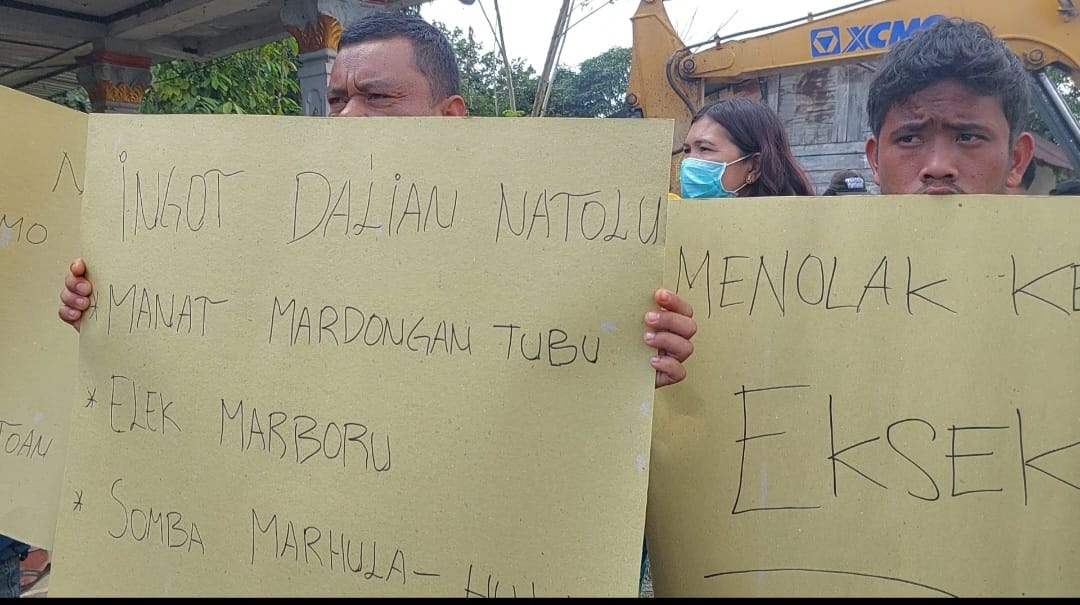 XCMG
INGOT DALIAN NATOLU
* MANAT MARDONGAN TUBU
* ELEK MARBORU
* SOMBA MARHULA-
MENOLAK KE
EKSEK
MO
TOAN